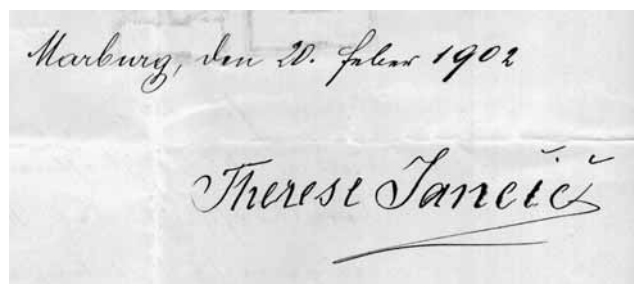 Marburg, den 20. Feber 1902
Therese Jančič